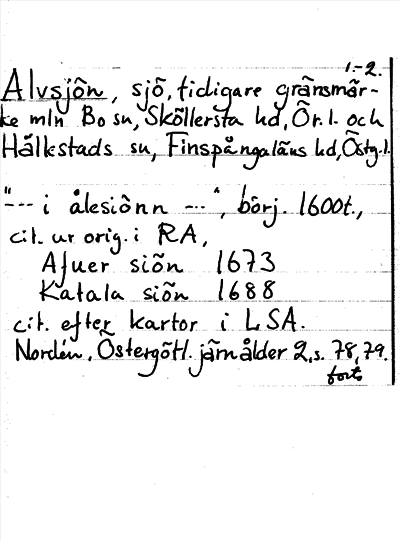 1.-2.
Alvsjön, sjö, tidigare gränsmär-
ke mln Bo sn, Sköllersta hd, Ör. l. och
Hällestads sn, Finspångaläns hd, Östg. l.
"--- i ålesiönn ---", börj. 1600t.,
cit. ur orig. i RA,
Afuer siön 1673
Katala siön 1688
cit. efter kartor i LSA.
Nordén, Östergötl. järnålder 2, s. 78, 79.
forts